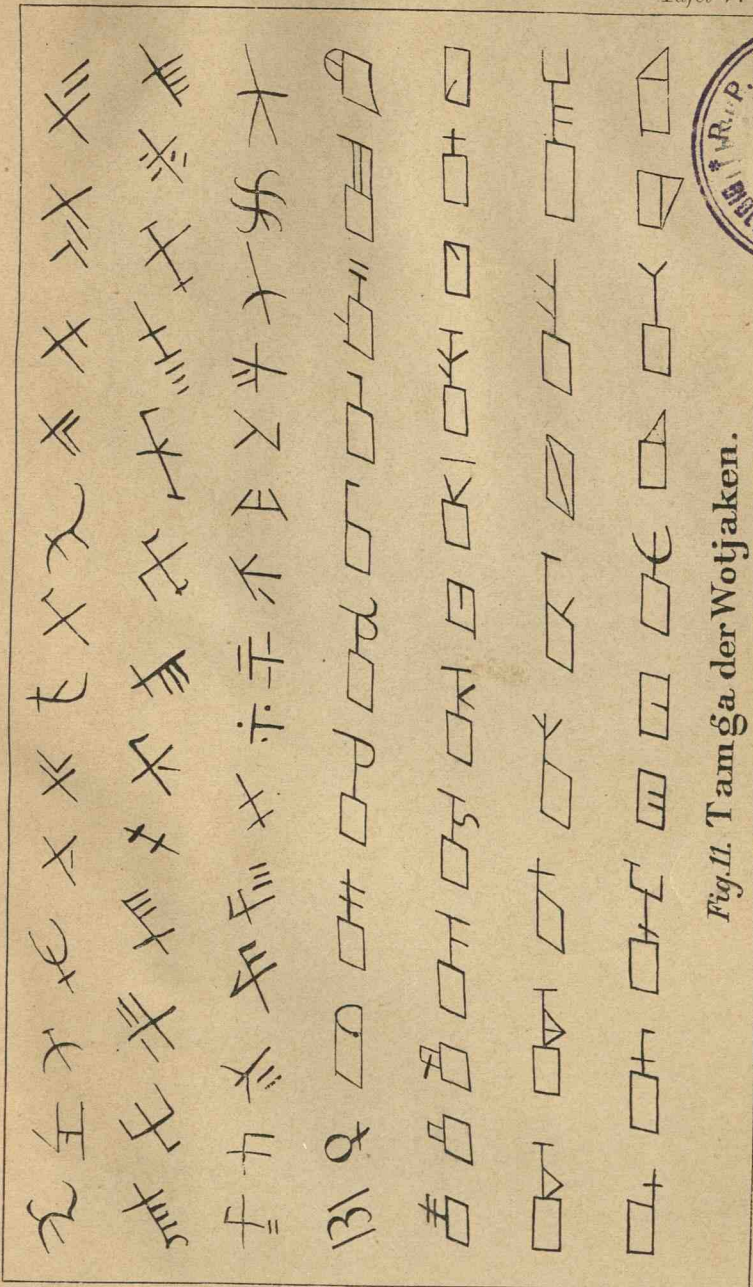 Fig. 11. Tamga der Wotjaken.